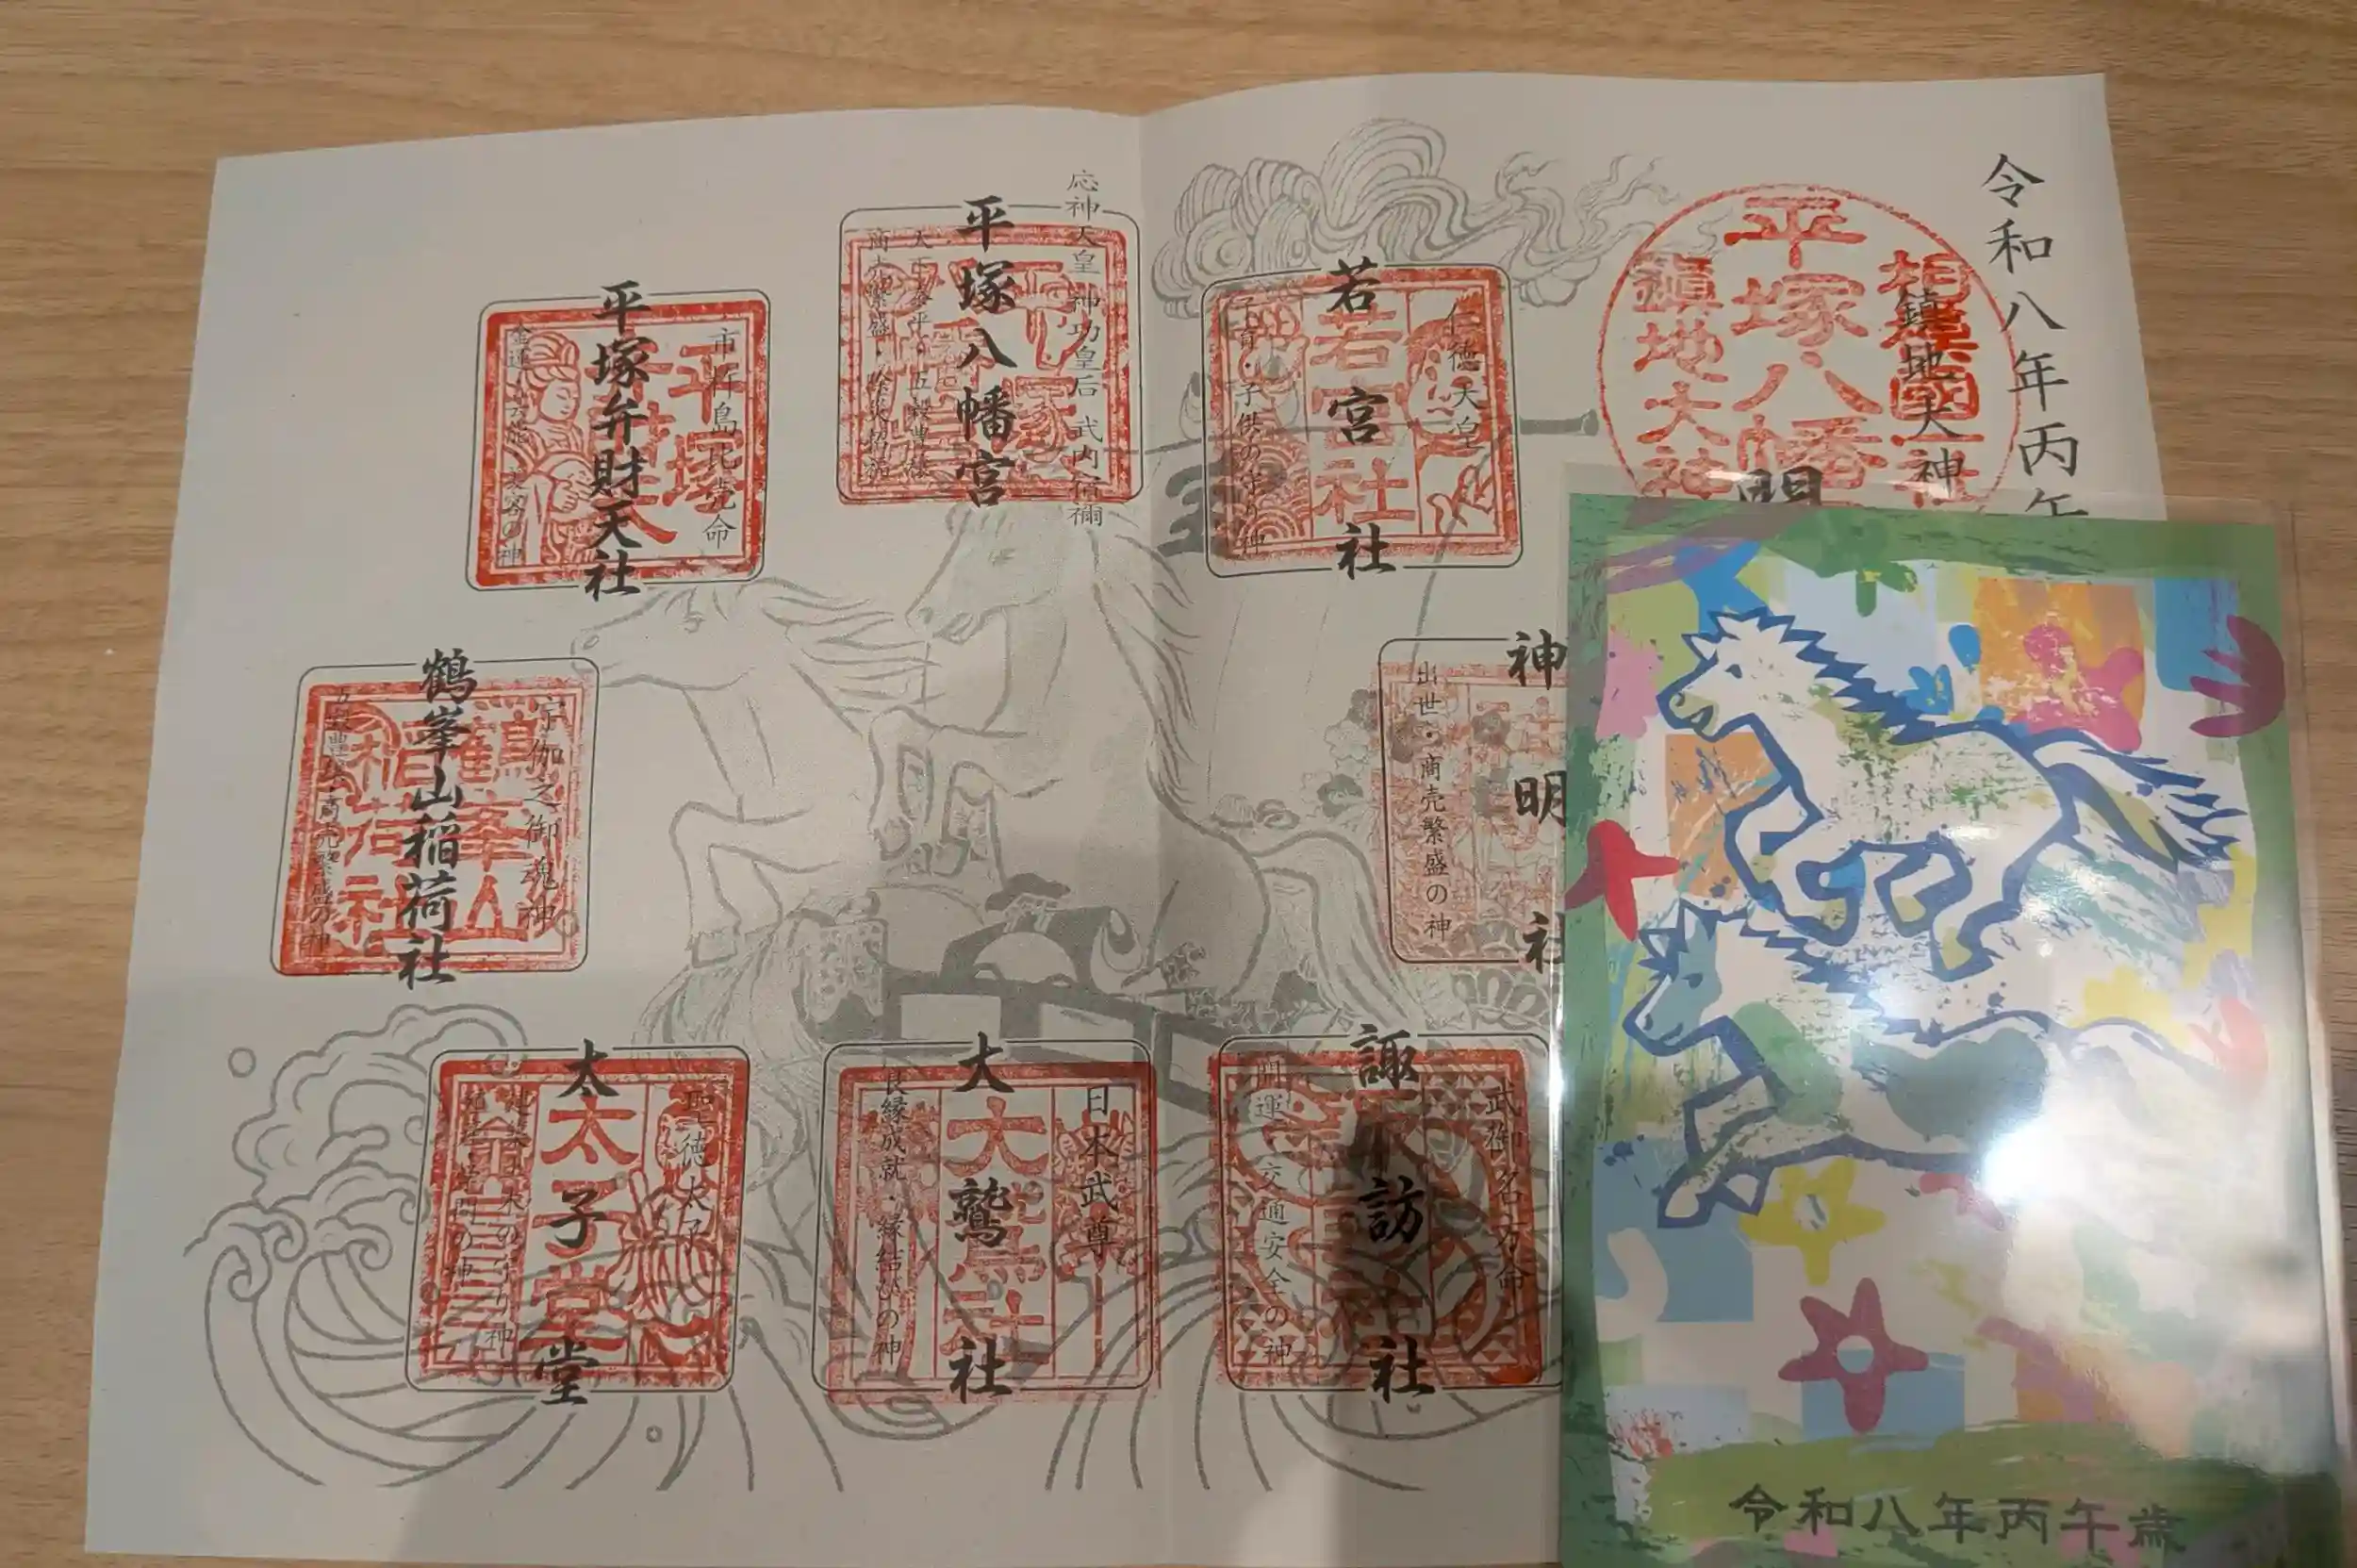 令和八年丙午
鎮地大神
平塚八幡
鎮地大神
相模國一
明
仁徳天皇
若宮社
若宮社
子育・子供の守り神
応神天皇 神功皇后 武内宿禰
平塚八幡宮
天下泰平・五穀豊穣
商売繁盛・除災招福
市杵島比売命
平塚弁財天社
金運・芸能・美容の神
宇伽之御魂神
鶴峯山稲荷社
鶴峯山稲荷社
五穀豊穣・商売繁盛の神
神明社
出世・商売繁盛の神
武御名方命
諏訪社
開運・交通安全の神
日本武尊
大鷲社
大鷲社
良縁成就・縁結びの神
聖徳太子
太子堂
太子堂
建築・木の守り神
学問の神
令和八年丙午歳